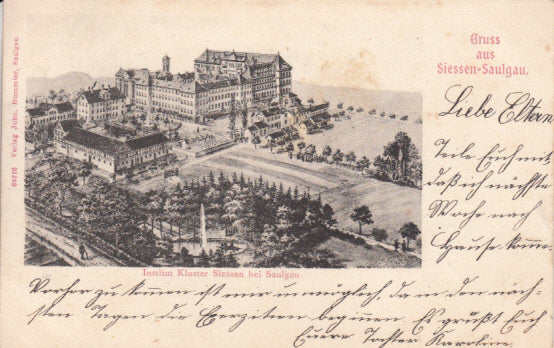 Gruss
aus
Siessen-Saulgau.
64716 Verlag Johs. Hummler, Saulgau.
Liebe Eltern
Teile Euch mit
daß ich nächste
Woche nach
Hause komme.
Institut Kloster Siessen bei Saulgau.
Vorher zu kommen ist mir unmöglich, da in den näch-
sten Tagen die Exerzitien beginnen. Es grüßt Euch
Euere Tochter Karoline.